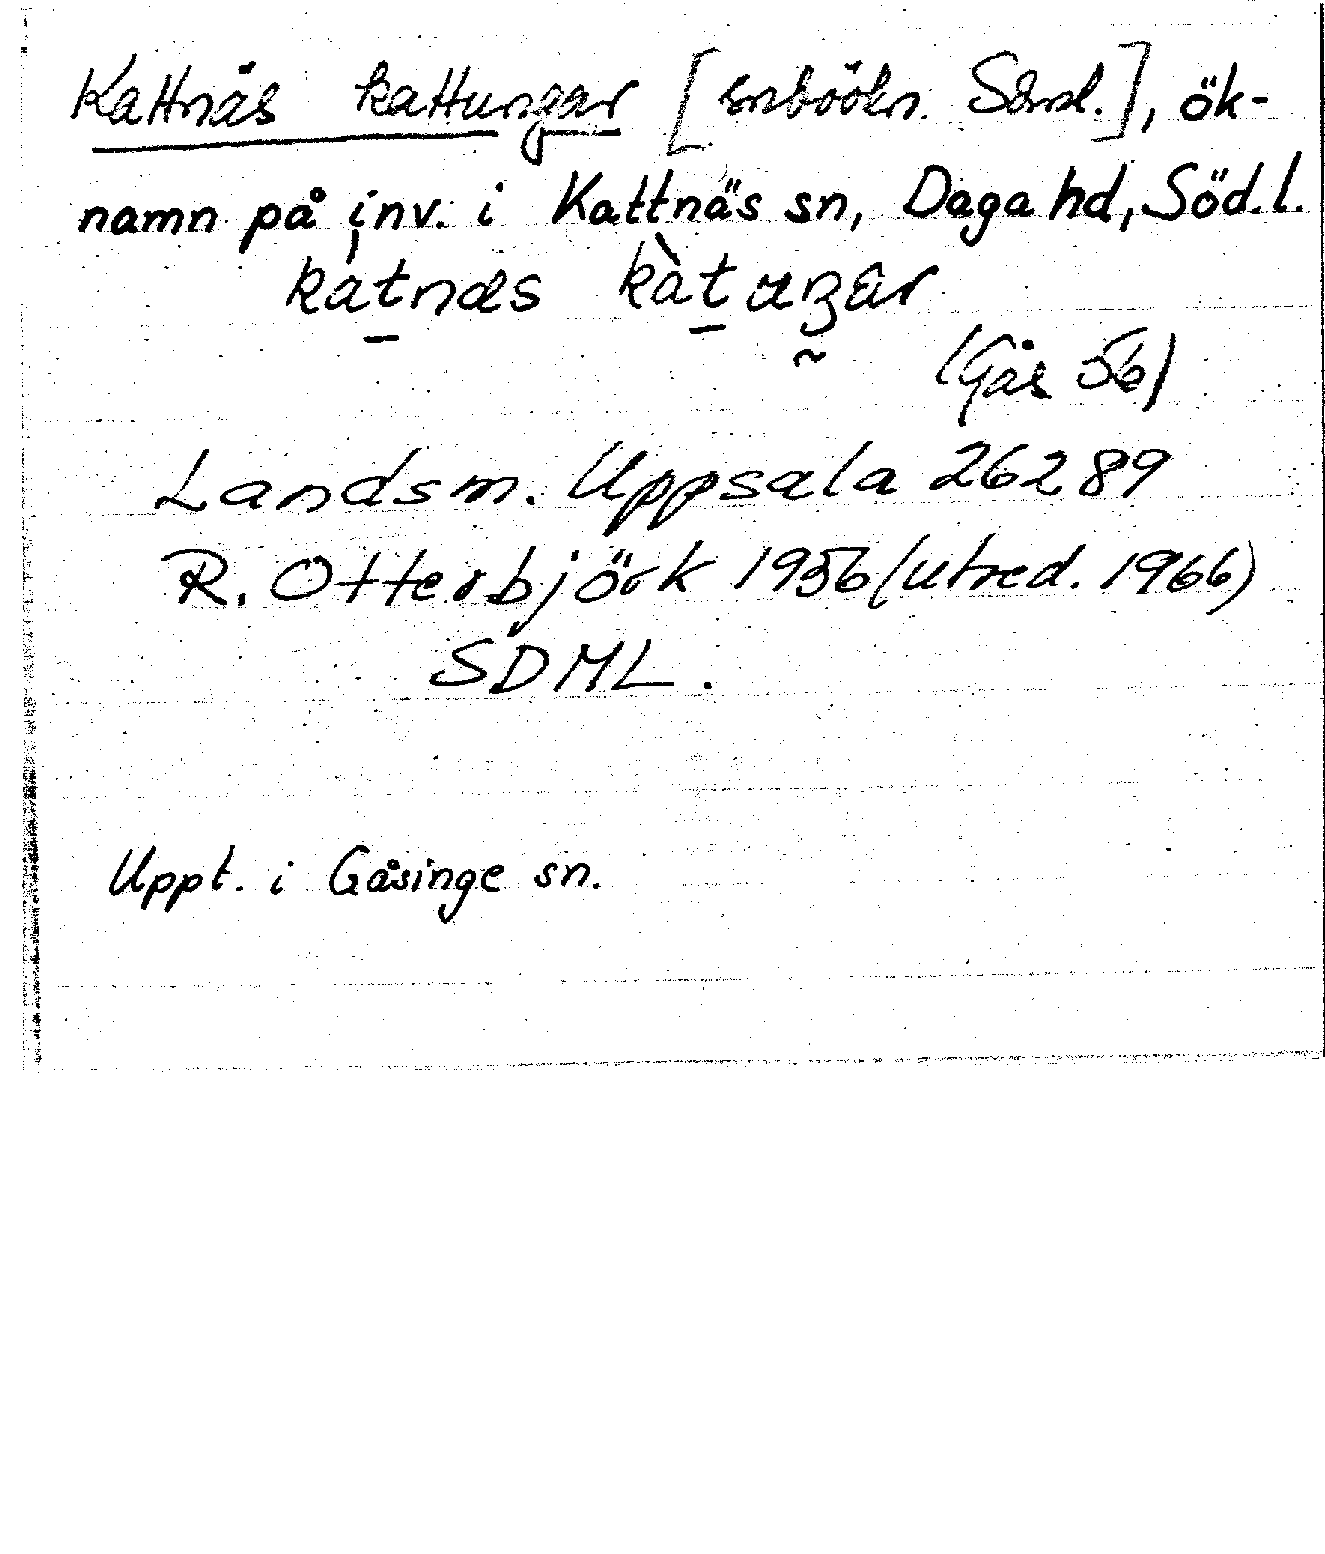 Kattnäs kattungar [snboökn. Sdml.], ök-
namn på inv. i Kattnäs sn, Daga hd, Söd.l.
katnæs
(Gås 56)
Landsm. Uppsala 26289
R. Otterbjörk 1956 (utred. 1966)
SDML.
Uppt. i Gåsinge sn.